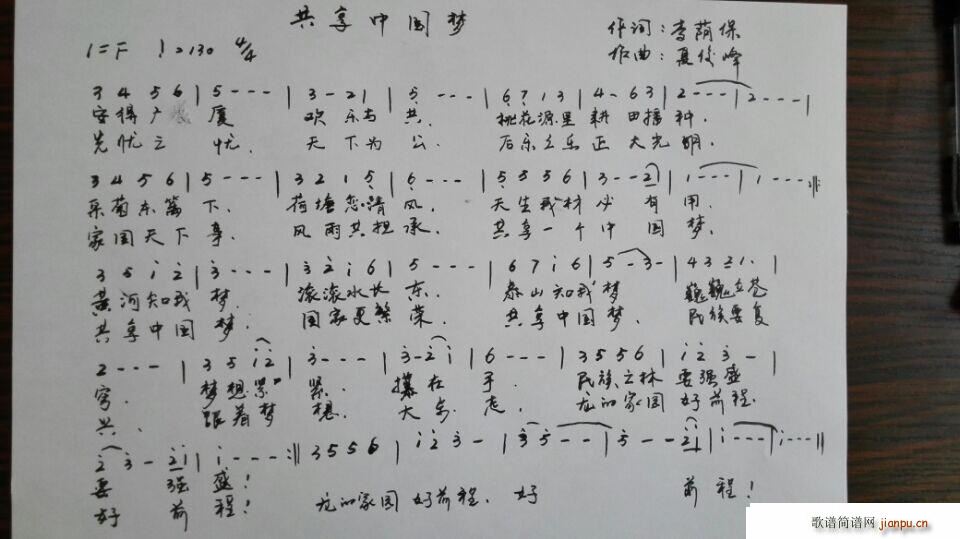 共享中国梦
作词:李荫保
1=F ♩=130 4/4
作曲:夏俊峰
3 4 5 6 | 5 - - - | 3 - 2 1 | 5 - - - | 6 7 1 3 | 4 - 6 3 | 2 - - - | 2 - - - |
安得广 厦 欢乐与共. 桃花源里耕田播种.
先忧之忧. 天下为公. 后乐之乐正大光明.
3 4 5 6 | 5 - - - | 3 2 1 5 | 6 - - - | 5 5 5 6 | 3 - - 2 | 1 - - - | 1 - - - :||
采菊东篱下. 荷塘怨清风. 天生我材必有用.
家国天下事. 风雨共担承. 共享一个中国梦.
3 5 i 2 | 3 - - - | 3 2 i 6 | 5 - - - | 6 7 i 6 | 5 - 3 - | 4 3 2 1 · |
黄河知我梦. 滚滚水长东. 泰山知我梦 巍巍立苍
共享中国梦. 国家更繁荣. 共享中国梦. 民族要复
2 - - - | 3 5 i 2 | 3 - - - | 3 - 2 i | 6 - - - | 3 5 5 6 | i 2 3 - |
穹. 梦想紧紧. 攥在手. 民族之林要强盛
兴. 跟着梦想. 大步走. 龙的家园好前程.
2 3 - 2 i | i - - - :|| 3 5 5 6 | i 2 3 - | 3 5 - - | 5 - - 2 i | i - - - | i - - - ||
要强盛!
好前程! 龙的家园好前程. 好 前程!
歌谱简谱网 jianpu.cn